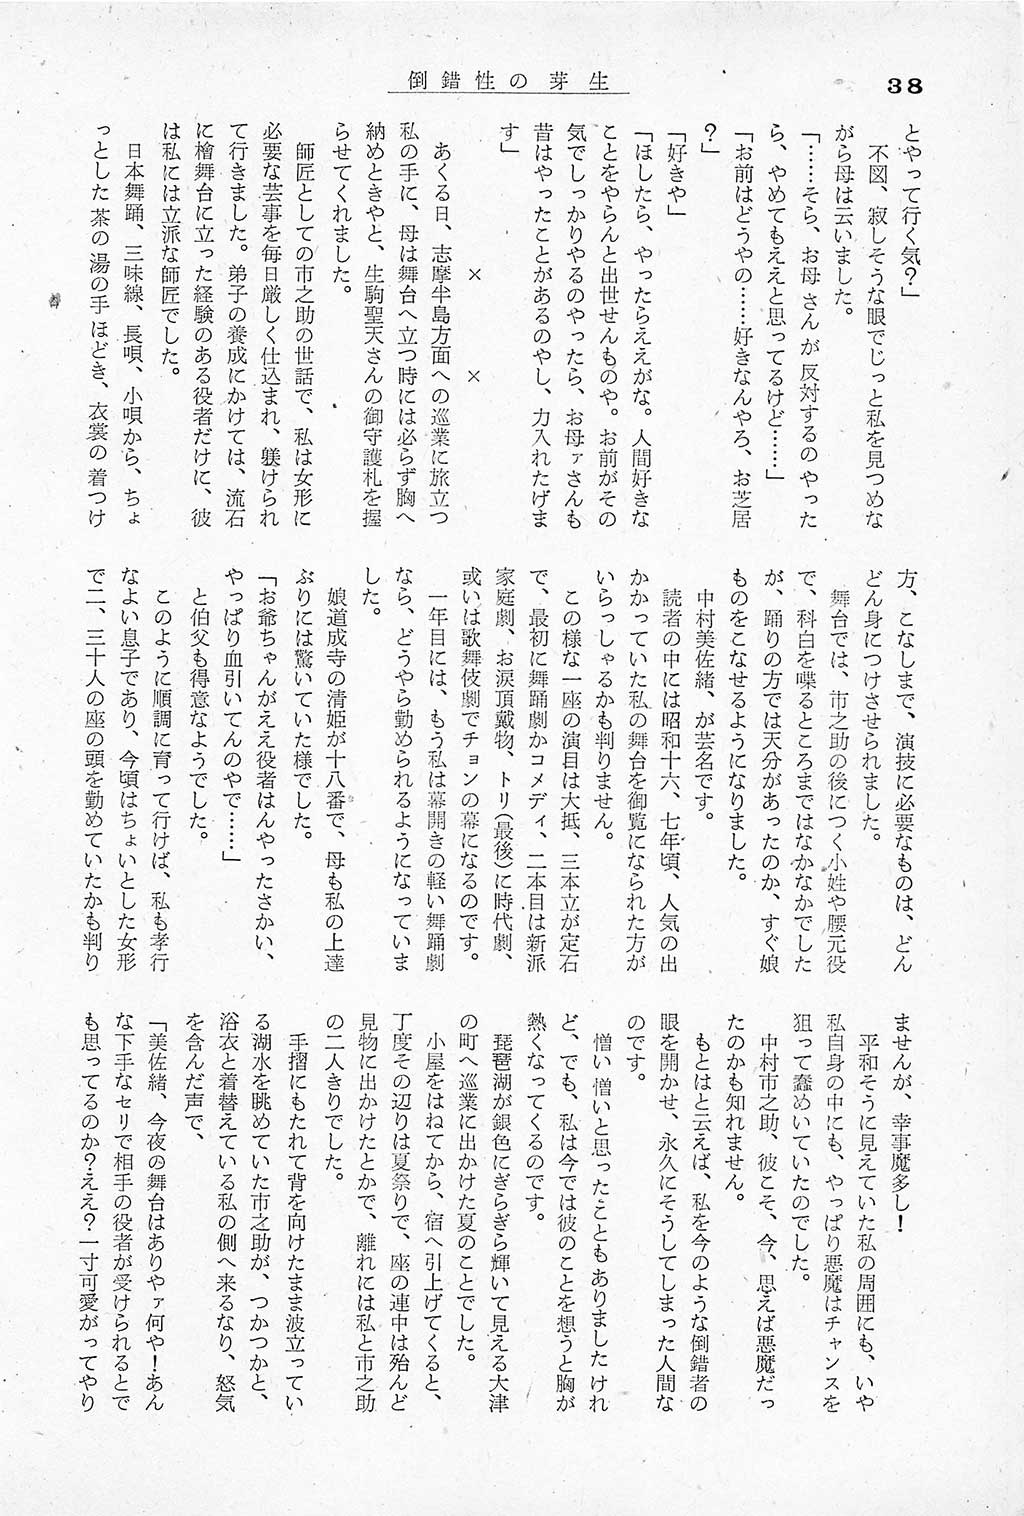 38
倒錯性の芽生
とやって行く気？」
不図、寂しそうな眼でじっと私を見つめな
がら母は云いました。
「……そら、お母さんが反対するのやった
ら、やめてもええと思ってるけど……」
「お前はどうやの……好きなんやろ、お芝居
？」
「好きや」
「ほしたら、やったらええがな。人間好きな
ことをやらんと出世せんものや。お前がその
気でしっかりやるのやったら、お母ァさんも
昔はやったことがあるのやし、力入れたげま
す」
× ×
あくる日、志摩半島方面への巡業に旅立つ
私の手に、母は舞台へ立つ時には必らず胸へ
納めときやと、生駒聖天さんの御守護札を握
らせてくれました。
師匠としての市之助の世話で、私は女形に
必要な芸事を毎日厳しく仕込まれ、躾けられ
て行きました。弟子の養成にかけては、流石
に檜舞台に立った経験のある役者だけに、彼
は私には立派な師匠でした。
日本舞踊、三味線、長唄、小唄から、ちょ
っとした茶の湯の手ほどき、衣裳の着つけ
方、こなしまで、演技に必要なものは、どん
どん身につけさせられました。
舞台では、市之助の後につく小姓や腰元役
で、科白を喋るところまではなかなかでした
が、踊りの方では天分があったのか、すぐ娘
ものをこなせるようになりました。
中村美佐緒、が芸名です。
読者の中には昭和十六、七年頃、人気の出
かかっていた私の舞台を御覧になられた方が
いらっしゃるかも判りません。
この様な一座の演目は大抵、三本立が定石
で、最初に舞踊劇かコメディ、二本目は新派
家庭劇、お涙頂戴物、トリ（最後）に時代劇、
或いは歌舞伎劇でチョンの幕になるのです。
一年目には、もう私は幕開きの軽い舞踊劇
なら、どうやら勤められるようになっていま
した。
娘道成寺の清姫が十八番で、母も私の上達
ぶりには驚いていた様でした。
「お爺ちゃんがええ役者はんやったさかい、
やっぱり血引いてんのやで……」
と伯父も得意なようでした。
このように順調に育って行けば、私も孝行
なよい息子であり、今頃はちょいとした女形
で二、三十人の座の頭を勤めていたかも判り
ませんが、幸事魔多し！
平和そうに見えていた私の周囲にも、いや
私自身の中にも、やっぱり悪魔はチャンスを
狙って蠢めいていたのでした。
中村市之助、彼こそ、今、思えば悪魔だっ
たのかも知れません。
もとはと云えば、私を今のような倒錯者の
眼を開かせ、永久にそうしてしまった人間な
のです。
憎い憎いと思ったこともありましたけれ
ど、でも、私は今では彼のことを想うと胸が
熱くなってくるのです。
琵琶湖が銀色にぎらぎら輝いて見える大津
の町へ巡業に出かけた夏のことでした。
小屋をはねてから、宿へ引上げてくると、
丁度その辺りは夏祭りで、座の連中は殆んど
見物に出かけたとかで、離れには私と市之助
の二人きりでした。
手摺にもたれて背を向けたまま波立ってい
る湖水を眺めていた市之助が、つかつかと、
浴衣と着替えている私の側へ来るなり、怒気
を含んだ声で、
「美佐緒、今夜の舞台はありやァ何や！あん
な下手なセリで相手の役者が受けられるとで
も思ってるのか？ええ？一寸可愛がってやり